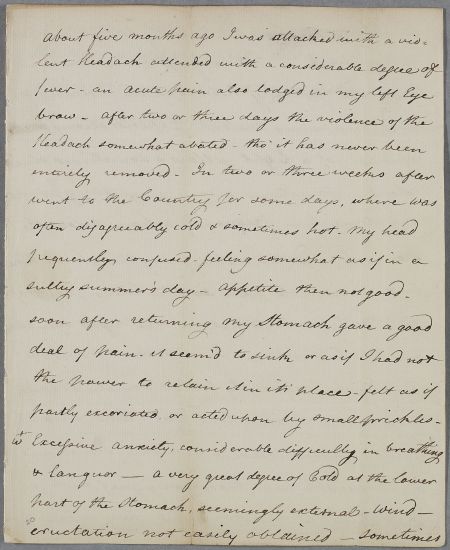 about five months ago I was attacked with a vio-
lent Headach attended with a considerable degree of
fever - an acute pain also lodged in my left Eye
brow - after two or three days the violence of the
Headach somewhat abated - tho' it has never been
entirely removed - In two or three weeks after
went to the Country for some days, where was
often disagreeably cold & sometimes hot - my head
frequently confused - feeling somewhat as if in a
sultry summer's day - appetite then not good -
soon after returning my Stomach gave a good
deal of pain - it seem'd to sink or as if I had not
the power to retain it in it's place - felt as if
partly excoriated or acted upon by small prickles -
wt Excessive anxiety, considerable difficulty in breathing
& languor — a very great degree of Cold at the lower
part of the Stomach, seemingly external - Wind -
eructation not easily obtained — sometimes